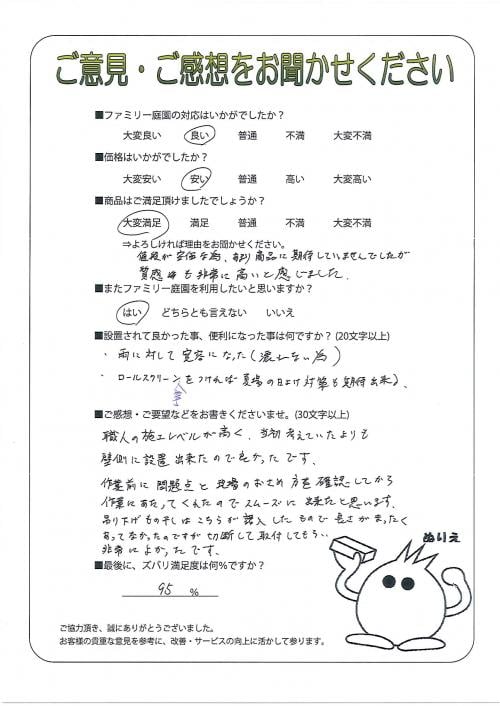 ご意見・ご感想をお聞かせください
■ファミリー庭園の対応はいかがでしたか？
大変良い 良い 普通 不満 大変不満
■価格はいかがでしたか？
大変安い 安い 普通 高い 大変高い
■商品はご満足頂けましたでしょうか？
大変満足 満足 普通 不満 大変不満
⇒よろしければ理由をお聞かせください。
値段が安価な為、あまり商品に期待していませんでしたが
質感も非常に高いと感じました。
■またファミリー庭園を利用したいと思いますか？
はい どちらとも言えない いいえ
■設置されて良かった事、便利になった事は何ですか？(20文字以上)
・雨に対して寛容になった(濡れない為)
・ロールスクリーン等をつければ夏場の日よけ対策も期待出来る。
■ご感想・ご要望などをお書きくださいませ。(30文字以上)
職人の施工レベルが高く、当初考えていたよりも
壁側に設置出来たので良かったです。
作業前に問題点と現場のおさめ方を確認してから
作業にあたってくれたのでスムーズに出来たと思います。
吊り下げもの干しはこちらが購入したもので長さがまったく
あってなかったのですが切断して取付してもらい
非常によかったです。
■最後に、ズバリ満足度は何%ですか？
95 %
ぬりえ
ご協力頂き、誠にありがとうございました。
お客様の貴重な意見を参考に、改善・サービスの向上に活かして参ります。